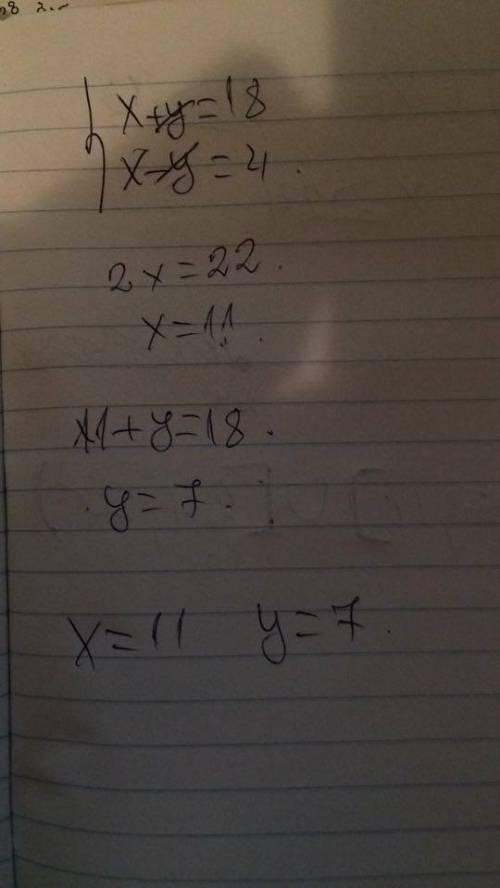 x+y=18
x-y=4.
2x=22.
x=11.
11+y=18.
y=7.
x=11 y=7.